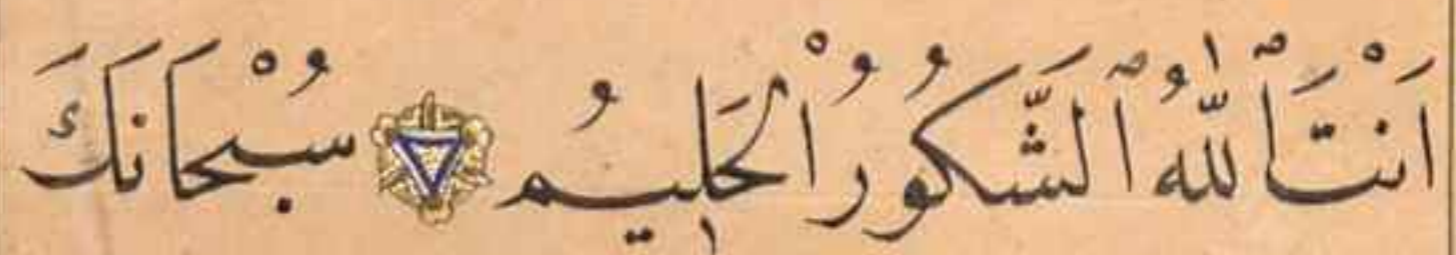 اَنْتَ ٱللّٰهُ ٱلشَّكُورُ الْحَلِيمُ سُبْحَانَكَ